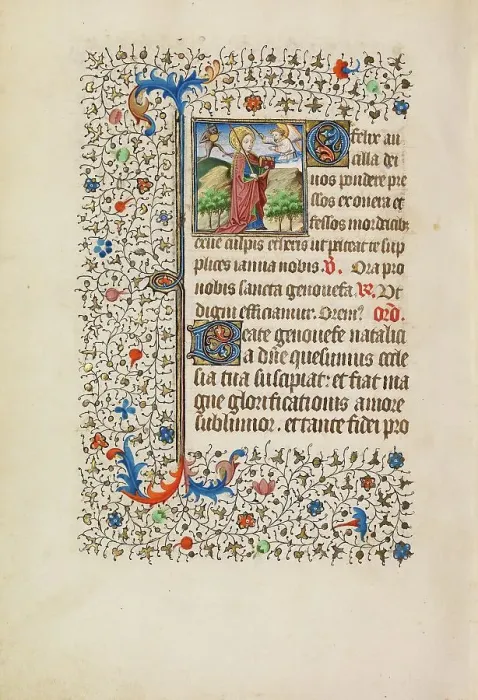 O felix an
cilla dei
nos pondere pre
ssos exonera et
fessos mordicib
exue culpis
plices ianua nobis. V. Ora pro
nobis sancta genouefa. R. Vt
digni efficiamur. Orem? Oro.
Beate genouefe natalici
a dne quesumus eccle
sia tua suscipiat: et fiat ma
gne glorificationis amore
sublimior. et tante fidei pro